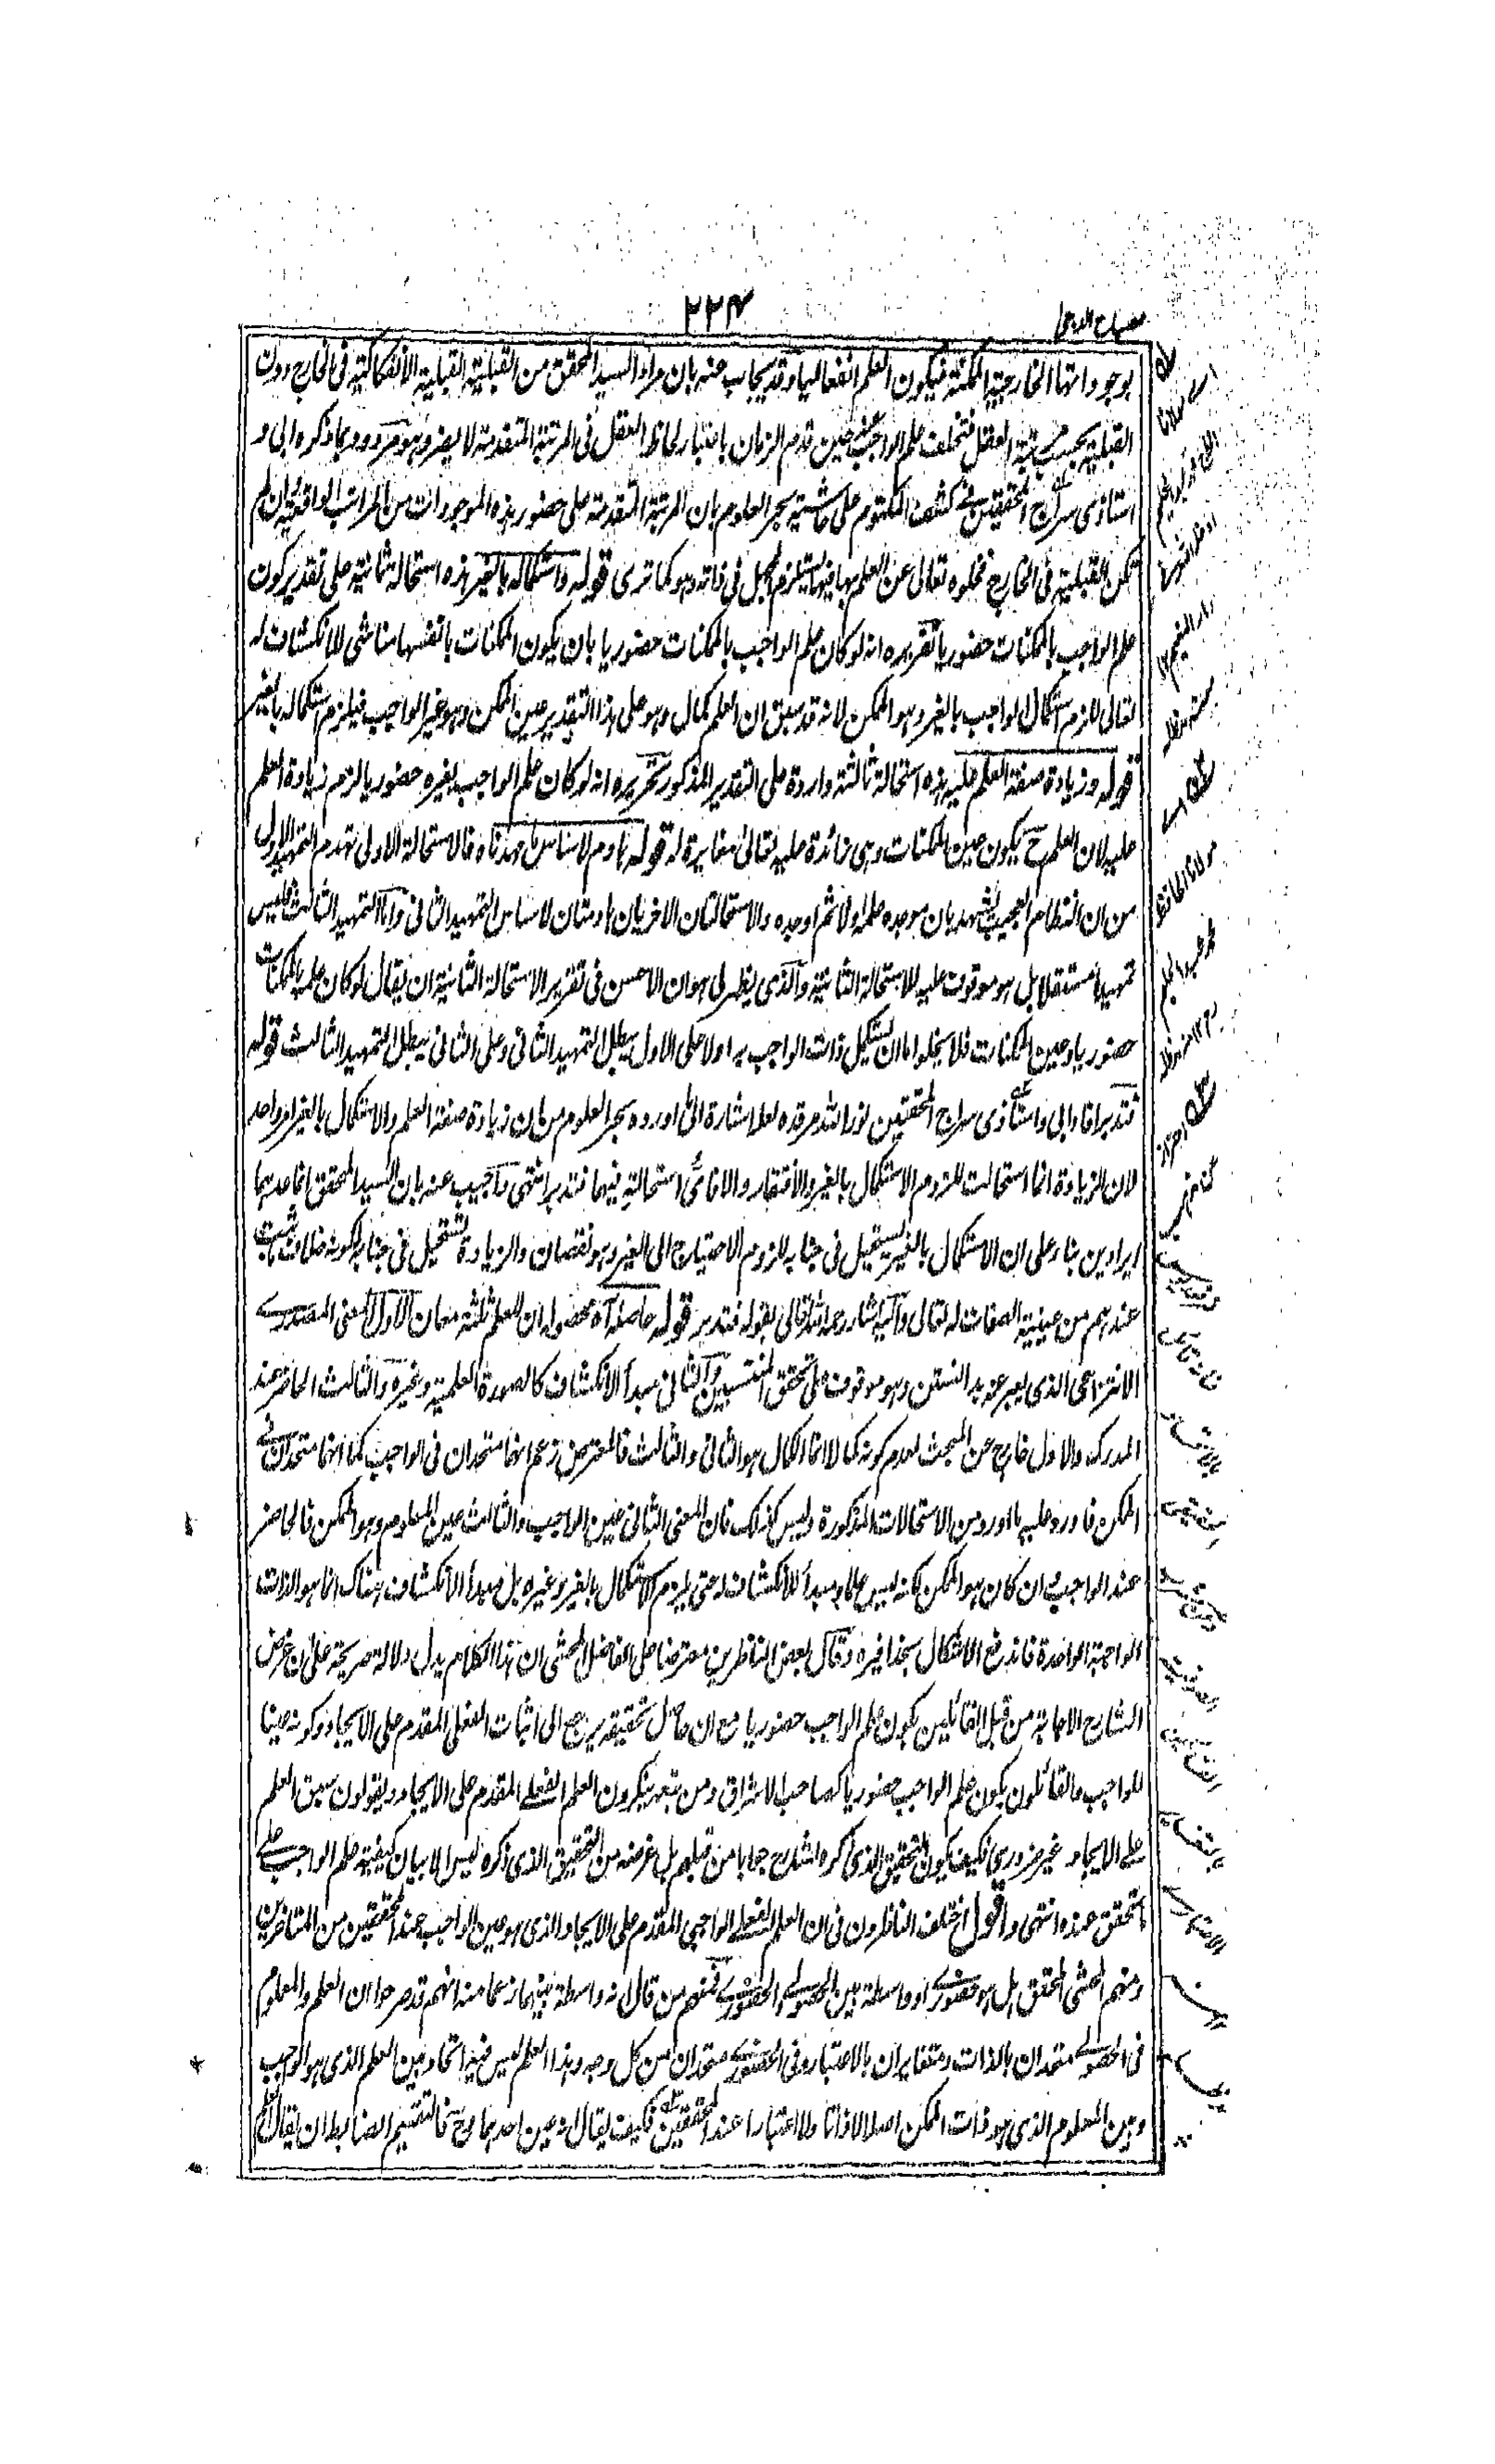 مصباح الدجى
٢٢٤
بوجوداتها الخارجية الممكنة فيكون العلم انفعاليا وقد يجاب عنه بان مراد السيد المحقق من القبلية القبلية الانفكاكية فى الخارج دون
القبلية بحسب مرتبة العقل فتخلف علم الواجب عنه حين قدم الزمان باعتبار لحاظ العقل فى المرتبة المتقدمة لا يضر وهو مردود بما ذكره ابى و
استاذى سراج المحققين فى كشف المكتوم على حاشية بحر العلوم بان المرتبة المتقدمة على حضور هذه الموجودات من المراتب الواقعية وان لم
تكن القبلية فى الخارج فخلوه تعالى عن العلم بها فيها يستلزم الجهل فى ذاته وهو كما ترى قوله واستكماله بالغير هذه استحالة ثانية على تقدير كون
علم الواجب بالممكنات حضوريا تقريره انه لو كان علم الواجب بالممكنات حضوريا بان يكون الممكنات بانفسها مناشى للانكشاف له
تعالى للزم استكمال الواجب بالغير وهو الممكن لانه قد سبق ان العلم كمال وهو على هذا التقدير عين الممكن وهو غير الواجب فيلزم استكماله بالغير
قوله وزيادة صفة العلم عليه هذه استحالة ثالثة واردة على التقدير المذكور تحريره انه لو كان علم الواجب بغيره حضوريا لزم زيادة العلم
عليه لان العلم ح يكون عين الممكنات وهى زائدة عليه تعالى مغايرة له قوله هادم لاساس ما مهدناه فالاستحالة الاولى تهدم التمهيد الاول
من ان النظام العجيب يشهد بان موجده علمه اولا ثم اوجده والاستحالتان الاخريان هادمتان لاساس التمهيد الثانى واما التمهيد الثالث فليس
تمهيدا مستقلا بل هو موقوف عليه للاستحالة الثانية والذى يظهر لى هو ان الاحسن فى تقرير الاستحالة الثانية ان يقال لو كان علمه بالممكنات
حضوريا وعين الممكنات فلا يخلو اما ان يستكمل ذات الواجب به اولا على الاول يبطل التمهيد الثانى وعلى الثانى يبطل التمهيد الثالث قوله
فتدبر افاد ابى واستاذى سراج المحققين نور الله مرقده لعله اشارة الى ما اورده بحر العلوم من ان زيادة صفة العلم والاستكمال بالغير امر واحد
لان الزيادة انما استحالت للزوم الاستكمال بالغير والافتقار والا فاى استحالة فيها فتدبر انتهى واجيب عنه بان السيد المحقق انما عدهما
ايرادين بناء على ان الاستكمال بالغير يستحيل فى جنابه للزوم الاحتياج الى الغير وهو نقصان والزيادة تستحيل فى جنابه لكونه خلاف ما ثبت
عندهم من عينية الصفات له تعالى واليه اشار رحمه الله تعالى بقوله فتدبر قوله حاصله اه محصوله ان للعلم ثلثة معان الاول المعنى المصدرى
الانتزاعى الذى يعبر عنه بدانستن وهو موقوف على تحقق المنتسبين والثانى مبدأ الانكشاف كالصورة العلمية وغيره والثالث الحاضر عند
المدرك والاول خارج عن المبحث لعدم كونه كمالا انما الكمال هو الثانى والثالث فالمعترض زعم انهما متحدان فى الواجب كما انهما متحدان فى
الممكن فاورد عليه ما اورد من الاستحالات المذكورة وليس كذلك فان المعنى الثانى عين الواجب والثالث عين المعلوم وهو الممكن فالحاضر
عند الواجب وان كان هو الممكن لكنه ليس علما ومبدأ للانكشاف له حتى يلزم الاستكمال بالغير وغيره بل مبدأ الانكشاف هناك انما هو الذات
الواجبة الواحدة فاندفع الاشكال بحذافيره وقال بعض الناظرين معترضا على الفاضل المحشى ان هذا الكلام يدل دلالة صريحة على ان غرض
الشارح الاجابة من قبل القائلين بكون علم الواجب حضوريا مع ان حاصل تحقيقه يرجع الى اثبات الفعلى المقدم على الايجاد وكونه عينا
للواجب والقائلون بكون علم الواجب حضوريا كصاحب الاشراق ومن تبعه ينكرون العلم الفعلى المقدم على الايجاد ويقولون سبق العلم
على الايجاد غير ضرورى فكيف يكون التحقيق الذى ذكره الشارح جوابا من قبلهم بل غرضه من التحقيق الذى ذكره ليس الا بيان كيفية علم الواجب على
ما تحقق عنده انتهى واقول اختلف الناظرون فى ان العلم الفعلى الواجبى المقدم على الايجاد والذى هو عين الواجب عند المحققين من المتأخرين
ومنهم المحشى المحقق هل هو حضورى او واسطة بين الحصولى والحضورى فمنهم من قال انه واسطة بينهما زعما منه انهم قد صرحوا ان العلم والمعلوم
فى الحصولى متحدان بالذات ومتغايران بالاعتبار وفى الحضورى متحدان من كل وجه وهذا العلم ليس فيه اتحاد بين العلم الذى هو الواجب
وبين المعلوم الذى هو ذات الممكن اصلا لا ذاتا ولا اعتبارا عند المحققين فكيف يقال انه عين احدهما وح فالتقسيم الضابط ان يقال العلم